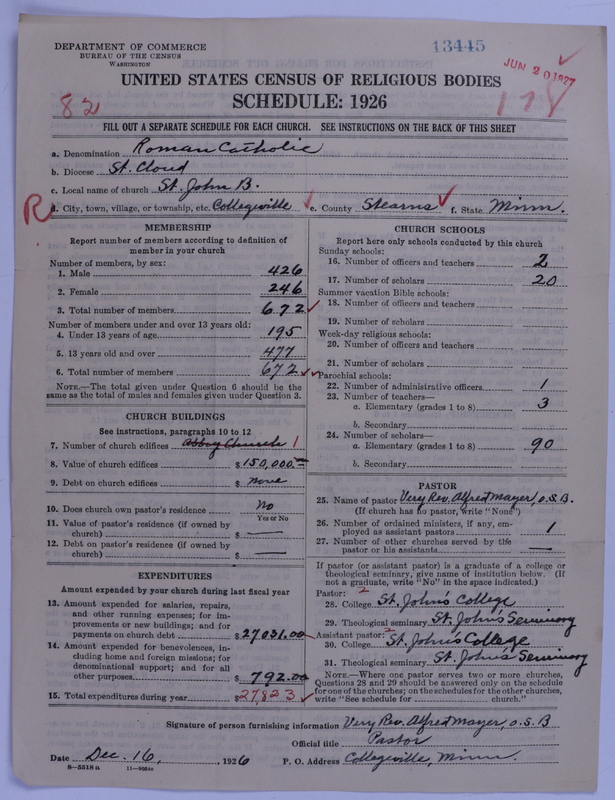 DEPARTMENT OF COMMERCE
BUREAU OF THE CENSUS
WASHINGTON
13445
JUN 20 1927
UNITED STATES CENSUS OF RELIGIOUS BODIES
SCHEDULE: 1926
82
FILL OUT A SEPARATE SCHEDULE FOR EACH CHURCH. SEE INSTRUCTIONS ON THE BACK OF THIS SHEET
a. Denomination Roman Catholic
b. Diocese St. Cloud
c. Local name of church St. John B.
R
d. City, town, village, or township, etc. Collegeville e. County Stearns f. State Minn.
MEMBERSHIP
Report number of members according to definition of
member in your church
Number of members, by sex:
1. Male 426
2. Female 246
3. Total number of members 672
Number of members under and over 13 years old:
4. Under 13 years of age 195
5. 13 years old and over 477
6. Total number of members 672
NOTE.—The total given under Question 6 should be the
same as the total of males and females given under Question 3.
CHURCH BUILDINGS
See instructions, paragraphs 10 to 12
7. Number of church edifices Abbey Church 1
8. Value of church edifices $150,000.—
9. Debt on church edifices $ none
10. Does church own pastor's residence No
Yes or No
11. Value of pastor's residence (if owned by
church) $ —
12. Debt on pastor's residence (if owned by
church) $ —
EXPENDITURES
Amount expended by your church during last fiscal year
13. Amount expended for salaries, repairs,
and other running expenses; for im-
provements or new buildings; and for
payments on church debt $27031.00
14. Amount expended for benevolences, in-
cluding home and foreign missions; for
denominational support; and for all
other purposes $ 792.00
15. Total expenditures during year $27823
CHURCH SCHOOLS
Report here only schools conducted by this church
Sunday schools:
16. Number of officers and teachers 2
17. Number of scholars 20
Summer vacation Bible schools:
18. Number of officers and teachers
19. Number of scholars
Week-day religious schools:
20. Number of officers and teachers
21. Number of scholars
Parochial schools:
22. Number of administrative officers 1
23. Number of teachers—
a. Elementary (grades 1 to 8) 3
b. Secondary
24. Number of scholars—
a. Elementary (grades 1 to 8) 90
b. Secondary
PASTOR
25. Name of pastor Very Rev. Alfred Mayer, O.S.B.
(If church has no pastor, write "None")
26. Number of ordained ministers, if any, em-
ployed as assistant pastors 1
27. Number of other churches served by the
pastor or his assistants —
If pastor (or assistant pastor) is a graduate of a college or
theological seminary, give name of institution below. (If
not a graduate, write "No" in the space indicated.)
Pastor: 2
28. College St. John's College
29. Theological seminary St. John's Seminary
Assistant pastor: 2
30. College St. John's College
31. Theological seminary St. John's Seminary
NOTE.—Where one pastor serves two or more churches,
Questions 28 and 29 should be answered only on the schedule
for one of the churches; on the schedules for the other churches,
write "See schedule for church."
Signature of person furnishing information Very Rev. Alfred Mayer, O.S.B
Official title Pastor
Date Dec. 16, , 1926 P. O. Address Collegeville, Minn.
8—5518 a